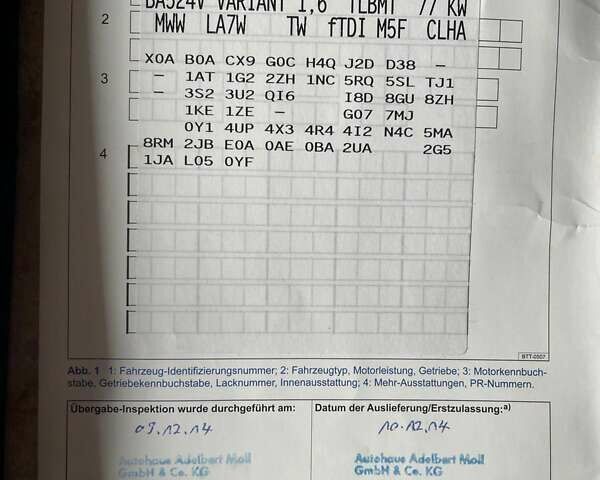 BA524V VARIANT 1,6 TLBMT 77 KW
2 MWW LA7W TW fTDI M5F CLHA
X0A B0A CX9 G0C H4Q J2D D38 –
3 – 1AT 1G2 2ZH 1NC 5RQ 5SL TJ1
– 3S2 3U2 QI6 I8D 8GU 8ZH
1KE 1ZE – G07 7MJ
0Y1 4UP 4X3 4R4 4I2 N4C 5MA
8RM 2JB E0A 0AE 0BA 2UA 2G5
4 1JA L05 0YF
BTT-0507
Abb. 1 1: Fahrzeug-Identifizierungsnummer; 2: Fahrzeugtyp, Motorleistung, Getriebe; 3: Motorkennbuch-
stabe, Getriebekennbuchstabe, Lacknummer, Innenausstattung; 4: Mehr-Ausstattungen, PR-Nummern.
Übergabe-Inspektion wurde durchgeführt am: Datum der Auslieferung/Erstzulassung:a)
09.12.14 10.12.14
Autohaus Adelbert Moll Autohaus Adelbert Moll
GmbH & Co. KG GmbH & Co. KG